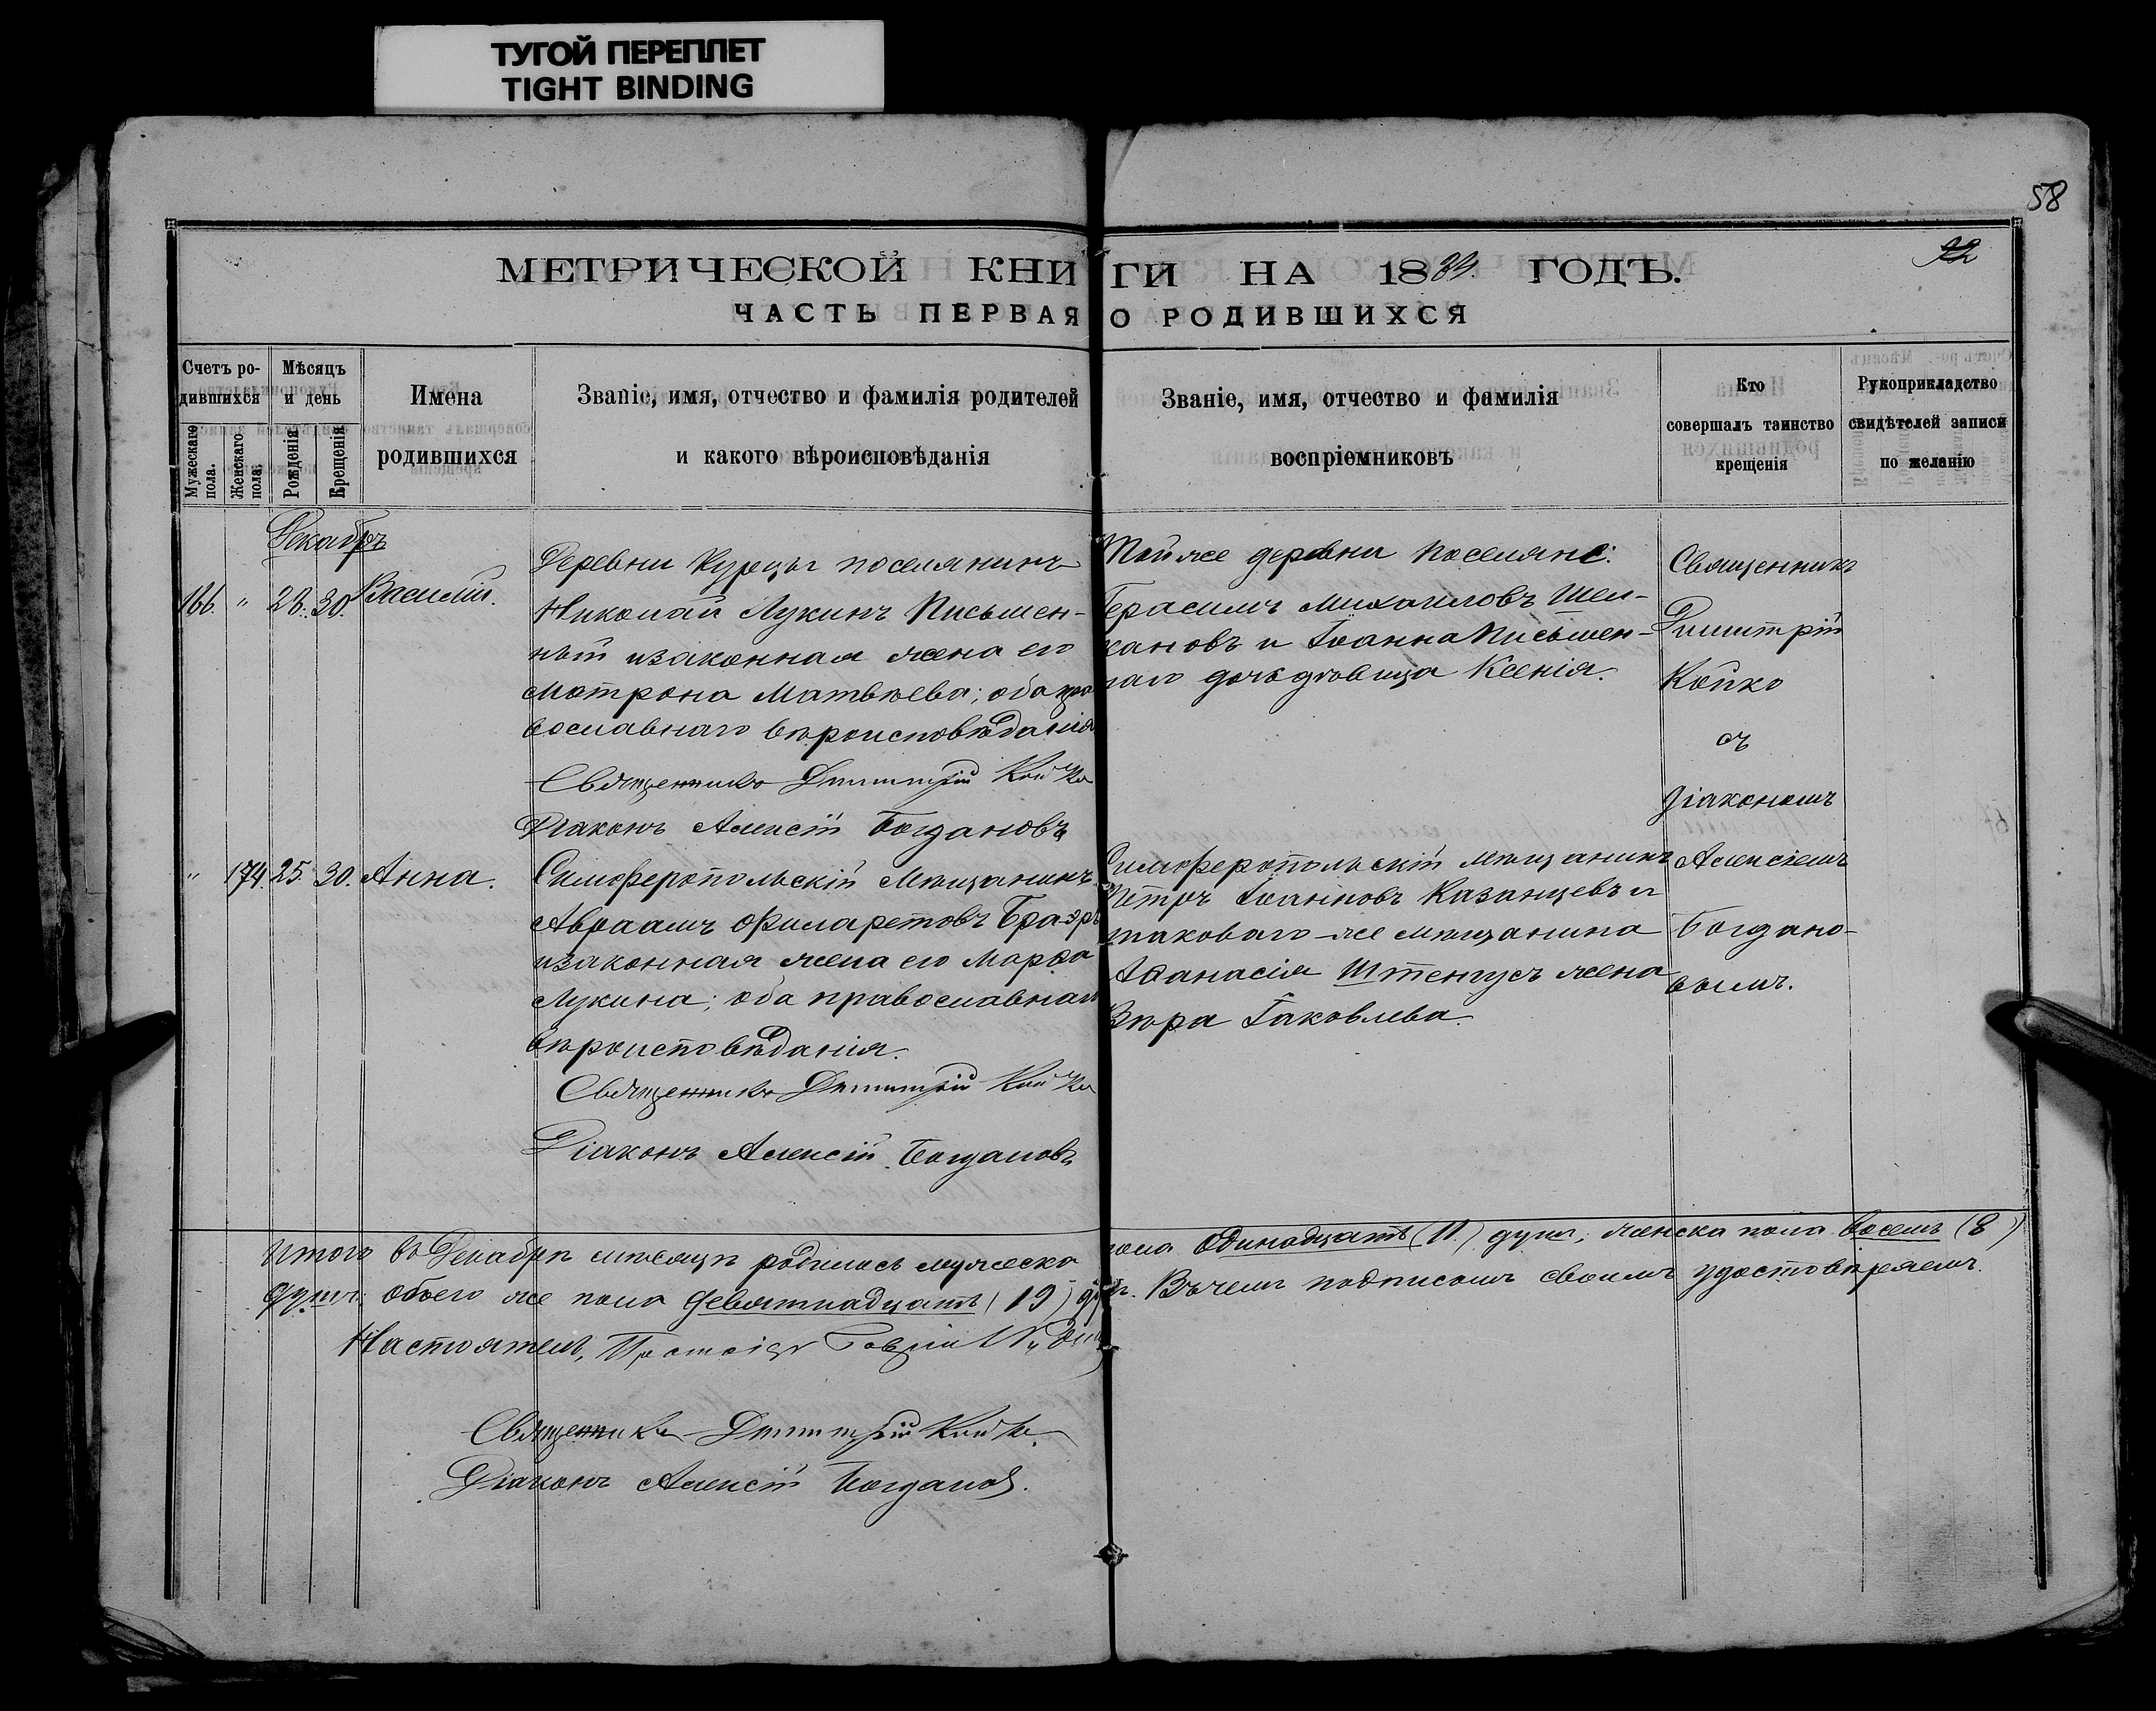 ТУГОЙ ПЕРЕПЛЕТ
TIGHT BINDING
58
МЕТРИЧЕСКОЙ КНИГИ НА 1884 ГОДЪ.
ЧАСТЬ ПЕРВАЯ О РОДИВШИХСЯ
Счетъ родившихся
Мужескаго пола.
Женскаго пола.
Мѣсяцъ и день
Рожденія
Крещенія
Имена
родившихся
Званіе, имя, отчество и фамилія родителей
и какого вѣроисповѣданія
Званіе, имя, отчество и фамилія
воспріемниковъ
Кто
совершалъ таинство
крещенія
Рукоприкладство
свидѣтелей записи
по желанію
Декабрь
166. " 28. 30. Василій.
Деревни Курцы поселянинъ
Николай Лукинъ Письмен-
ный и законная жена его
Матрона Матвѣева; оба пра
вославнаго вѣроисповѣданія
Священникъ Димитрій Койко
Діаконъ Алексій Богдановъ
Той же деревни поселяне:
Герасимъ Михаиловъ Шел-
кановъ и Іоанна Письмен-
наго дочь дѣвица Ксенія.
Священникъ
Димитрій
Койко
съ
діакономъ
Алексіемъ
Богдано-
вымъ.
" 174. 25. 30. Анна.
Симферопольскій мѣщанинъ
Авраамъ Филаретовъ
и законная жена его Марѳа
Лукина; оба православнаго
вѣроисповѣданія.
Священникъ Димитрій Койко
Діаконъ Алексій Богдановъ
Симферопольскій мѣщанинъ
Петръ Іоанновъ Казанцевъ и
таковаго-же мѣщанина
Аѳанасія Штенгусъ жена
Вѣра Іаковлева.
Итого въ Декабрѣ мѣсяцѣ родилось мужеска пола одинадцать (11) душъ, женска пола восемь (8)
душъ; обоего же пола девятнадцать (19) душъ. Въ чемъ подписомъ своимъ удостовѣряемъ.
Настоятель, Протоіерей
Священникъ Димитрій Койко
Діаконъ Алексій Богдановъ.